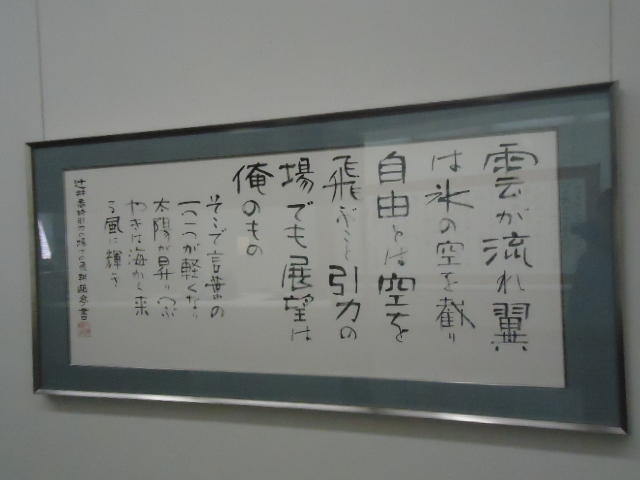 雲が流れ翼
は氷の空を截り
自由とは空を
飛ぶこと引力の
場でも展望は
俺のもの
そこで言葉の
一つ一つが軽くなり
太陽が昇りつぶ
やきは海から来
る風に輝き